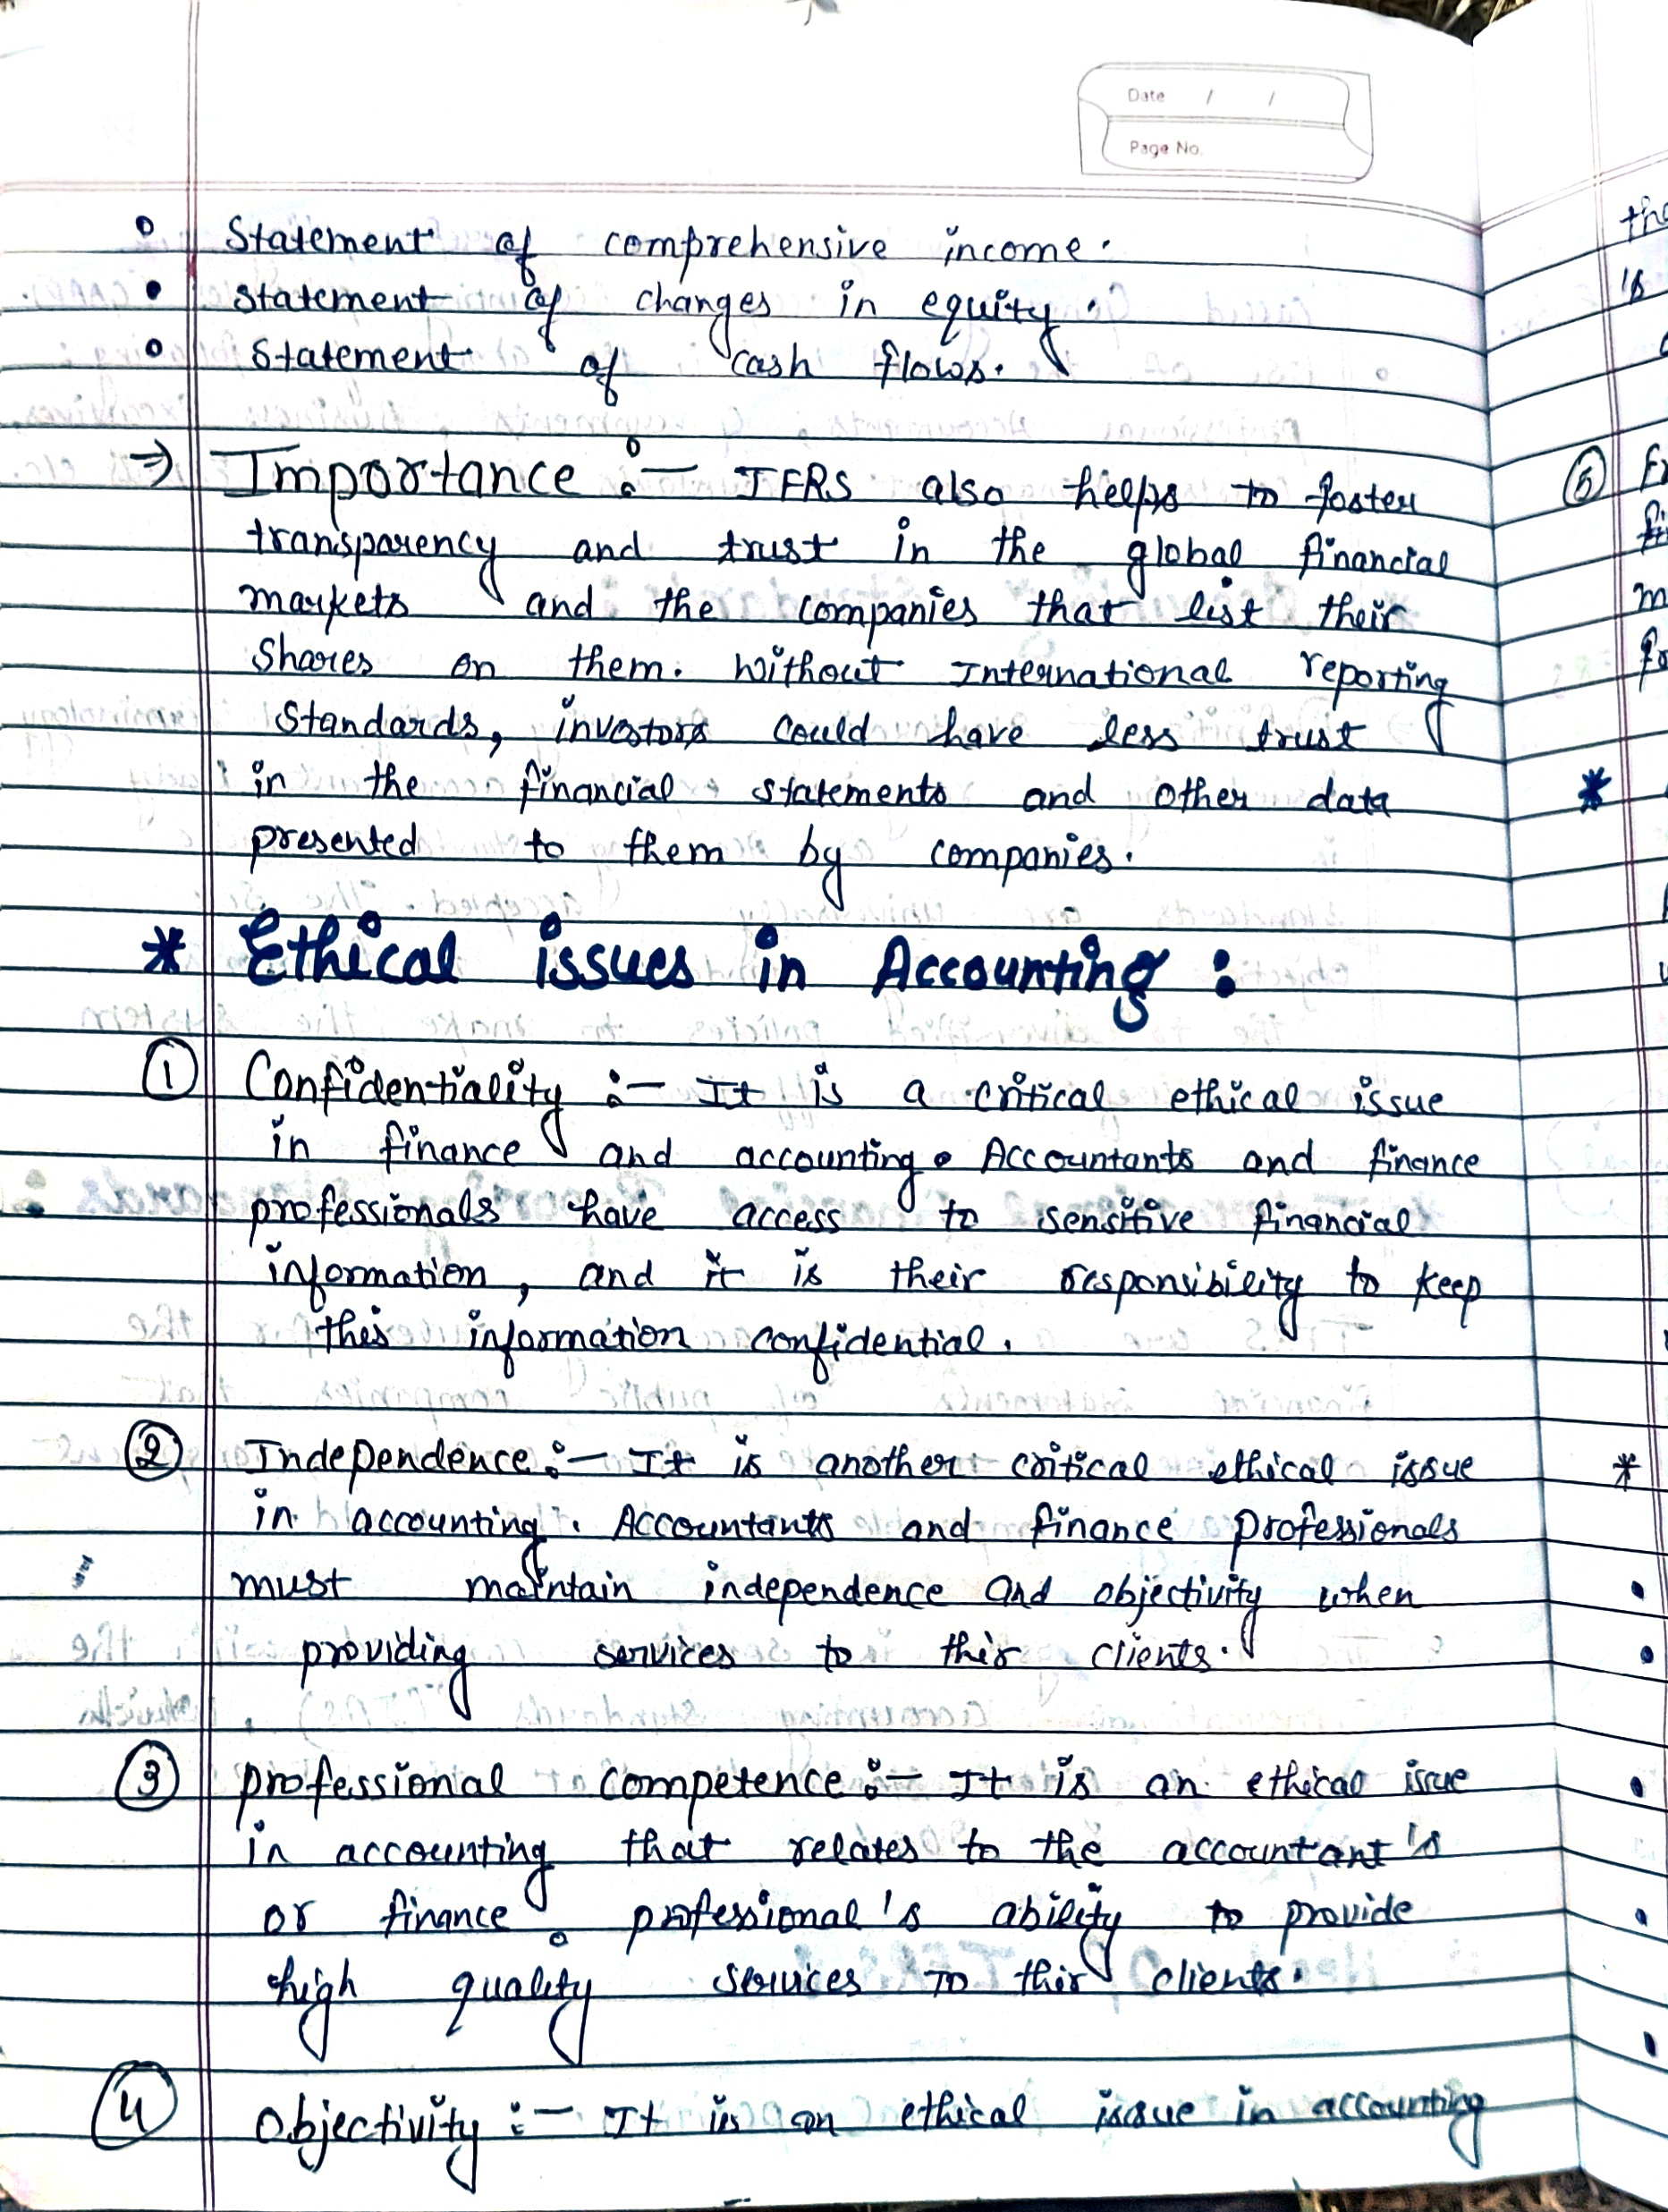 Date / /
Page No.
• Statement of comprehensive income.
• Statement of changes in equity.
• Statement of cash flows.
⇒ Importance :- IFRS also helps to foster
transparency and trust in the global financial
markets and the companies that list their
Shares on them. Without International reporting
Standards, investors could have less trust
in the financial statements and other data
presented to them by companies.
* Ethical issues in Accounting :
① Confidentiality :- It is a critical ethical issue
in finance and accounting. Accountants and finance
professionals have access to sensitive financial
information, and it is their responsibility to keep
this information confidential.
② Independence :- It is another critical ethical issue
in accounting. Accountants and finance professionals
must maintain independence and objectivity when
providing services to their clients.
③ professional competence :- It is an ethical issue
in accounting that relates to the accountant's
or finance professional's ability to provide
high quality services to their clients.
④ Objectivity :- It is an ethical issue in accounting
the
is
⑤
*
*